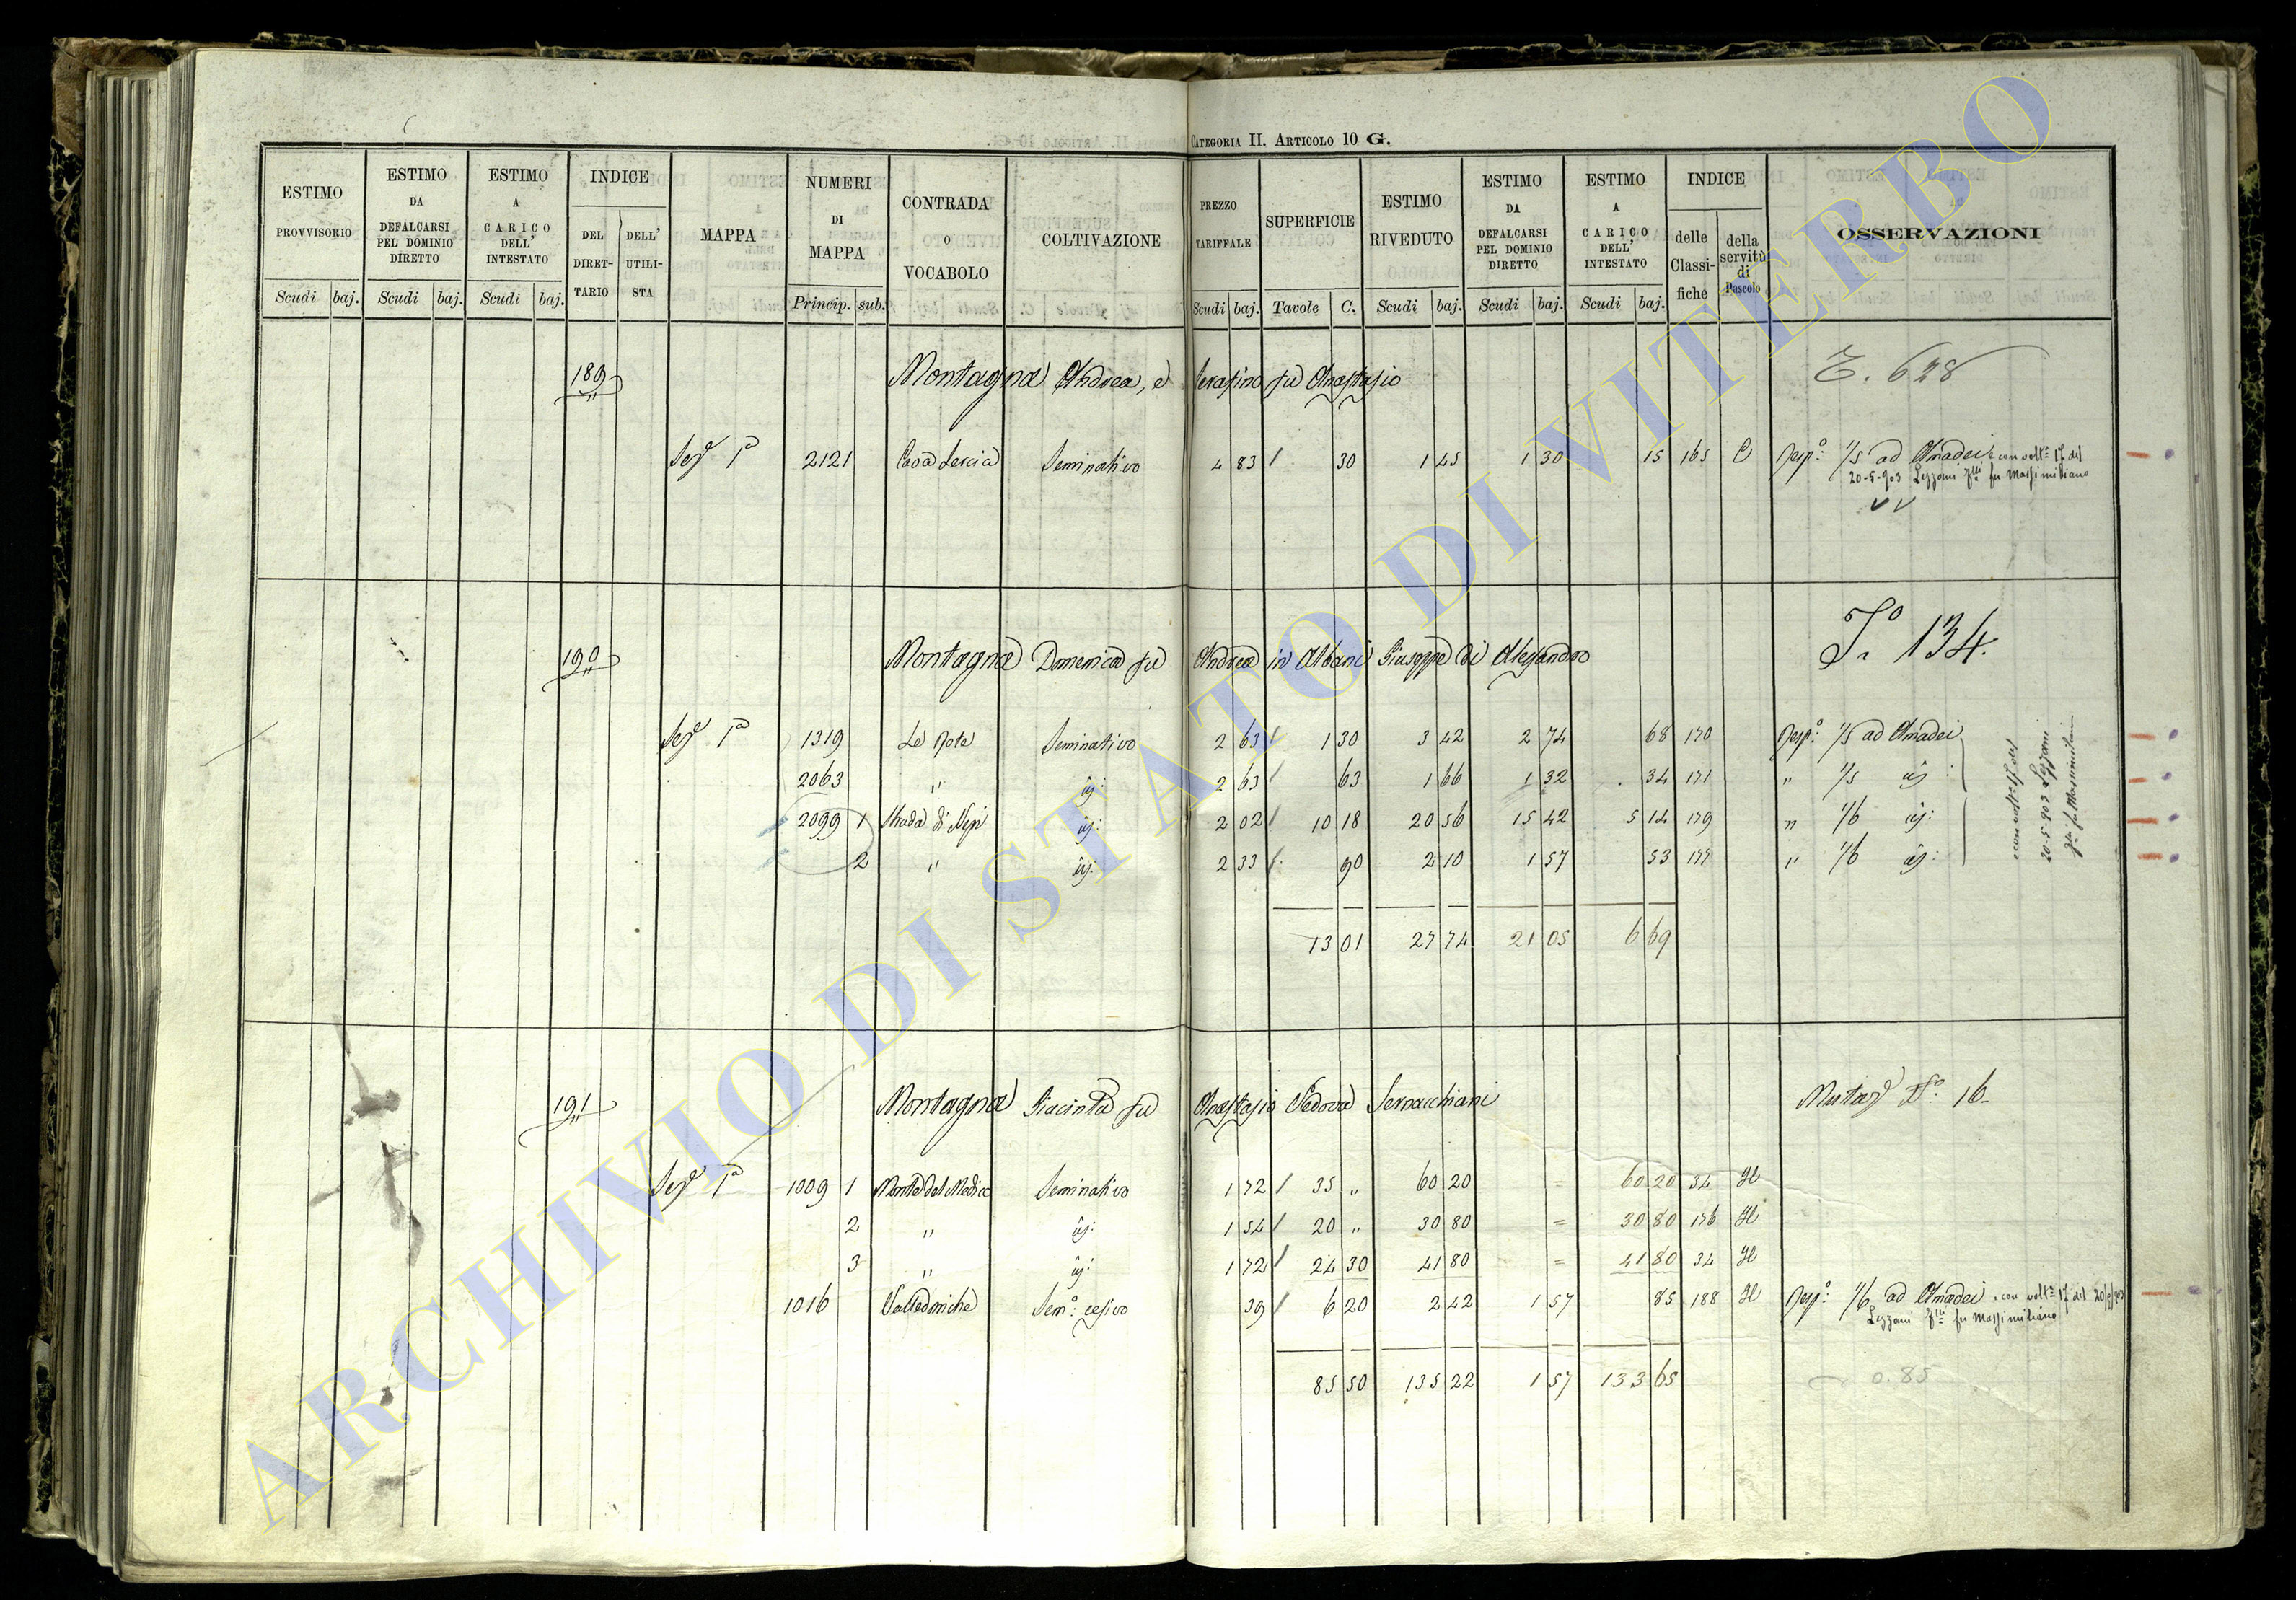 CATEGORIA II. ARTICOLO 10 G.
ESTIMO PROVVISORIO Scudi baj.
ESTIMO DA DEFALCARSI PEL DOMINIO DIRETTO Scudi baj.
ESTIMO A CARICO DELL' INTESTATO Scudi baj.
INDICE DEL DIRETTARIO DELL' UTILISTA
MAPPA
NUMERI DI MAPPA Princip. sub.
CONTRADA O VOCABOLO
COLTIVAZIONE
PREZZO TARIFFALE Scudi baj.
SUPERFICIE Tavole C.
ESTIMO RIVEDUTO Scudi baj.
ESTIMO DA DEFALCARSI PEL DOMINIO DIRETTO Scudi baj.
ESTIMO A CARICO DELL' INTESTATO Scudi baj.
INDICE delle Classifiche della servitù di Pascolo
OSSERVAZIONI
189 Montagna Andrea, e Serafino fu Anastasio T. 628
Seze 1a 2121 Casa Lescia Seminativo 4 83 / 30 1 45 1 30 15 165 C Resp: 1/5 ad Amadei e con volta 17 del
20-5-903 Lezzani flli fu Massimiliano
190 Montagna Domenica fu Andrea in Albani Giuseppe di Alessandro To 134.
Seze 1a 1319 Le Rote Seminativo 2 63 / 1 30 3 42 2 74 68 170 Resp: 1/5 ad Amadei
2063 " id: 2 63 / 63 1 66 1 32 34 171 " 1/5 id:
2099 1 Strada di Nepi id: 2 02 / 10 18 20 56 15 42 5 14 179 " 1/6 id:
2 " id: 2 33 / 90 2 10 1 57 53 177 " 1/6 id:
e con volta 17 del
20-5-903 Lezzani
flli fu Massimiliano
13 01 27 74 21 05 6 69
191 Montagna Giacinta fu Anastasio Vedova Sernacchiani Mutaze No. 16
Seze 1a 1009 1 Monte del Medico Seminativo 1 72 / 35 " 60 20 = 60 20 34 H
2 " id: 1 54 / 20 " 30 80 = 30 80 176 H
3 " id: 1 72 / 24 30 41 80 = 41 80 34 H
1016 Valledoniche Semo: cesivo 39 / 6 20 2 42 1 57 85 188 H Resp: 1/6 ad Amadei e con volta 17 del 20/5/903
Lezzani flli fu Massimiliano
85 50 135 22 1 57 133 65 0.85
ARCHIVIO DI STATO DI VITERBO